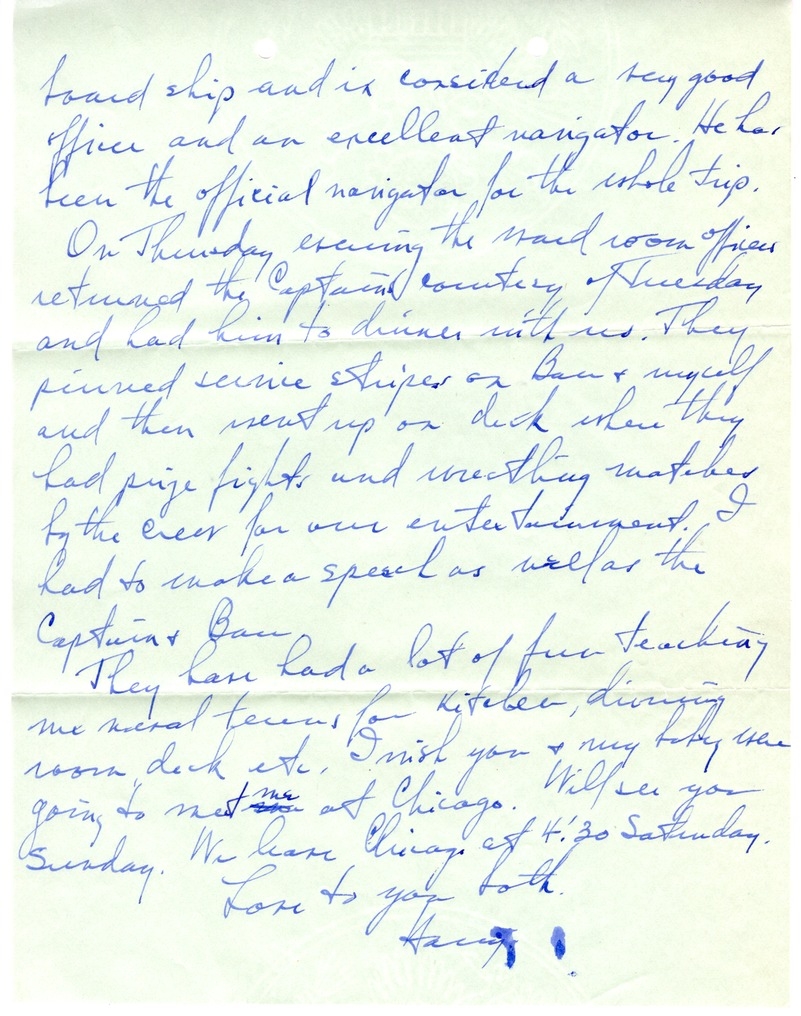 board ship and is considerd a very good
officer and an excellent navigator. He has
been the official navigator for the whole trip.
On Thursday evening the ward room officers
returned the Captains courtesy of Tuesday
and had him to dinner with us. They
pinned service stripes on Bau & myself
and then went up on deck where they
had prize fights and wrestling matches
by the crew for our entertainment. I
had to make a speech as well as the
Captain & Bau
They have had a lot of fun teaching
me naval terms for kitchen, dinning
room, deck etc. I wish you & my baby were
going to meet me at Chicago. Will see you
Sunday. We leave Chicago at 4:30 Saturday.
Love to you both.
Harry